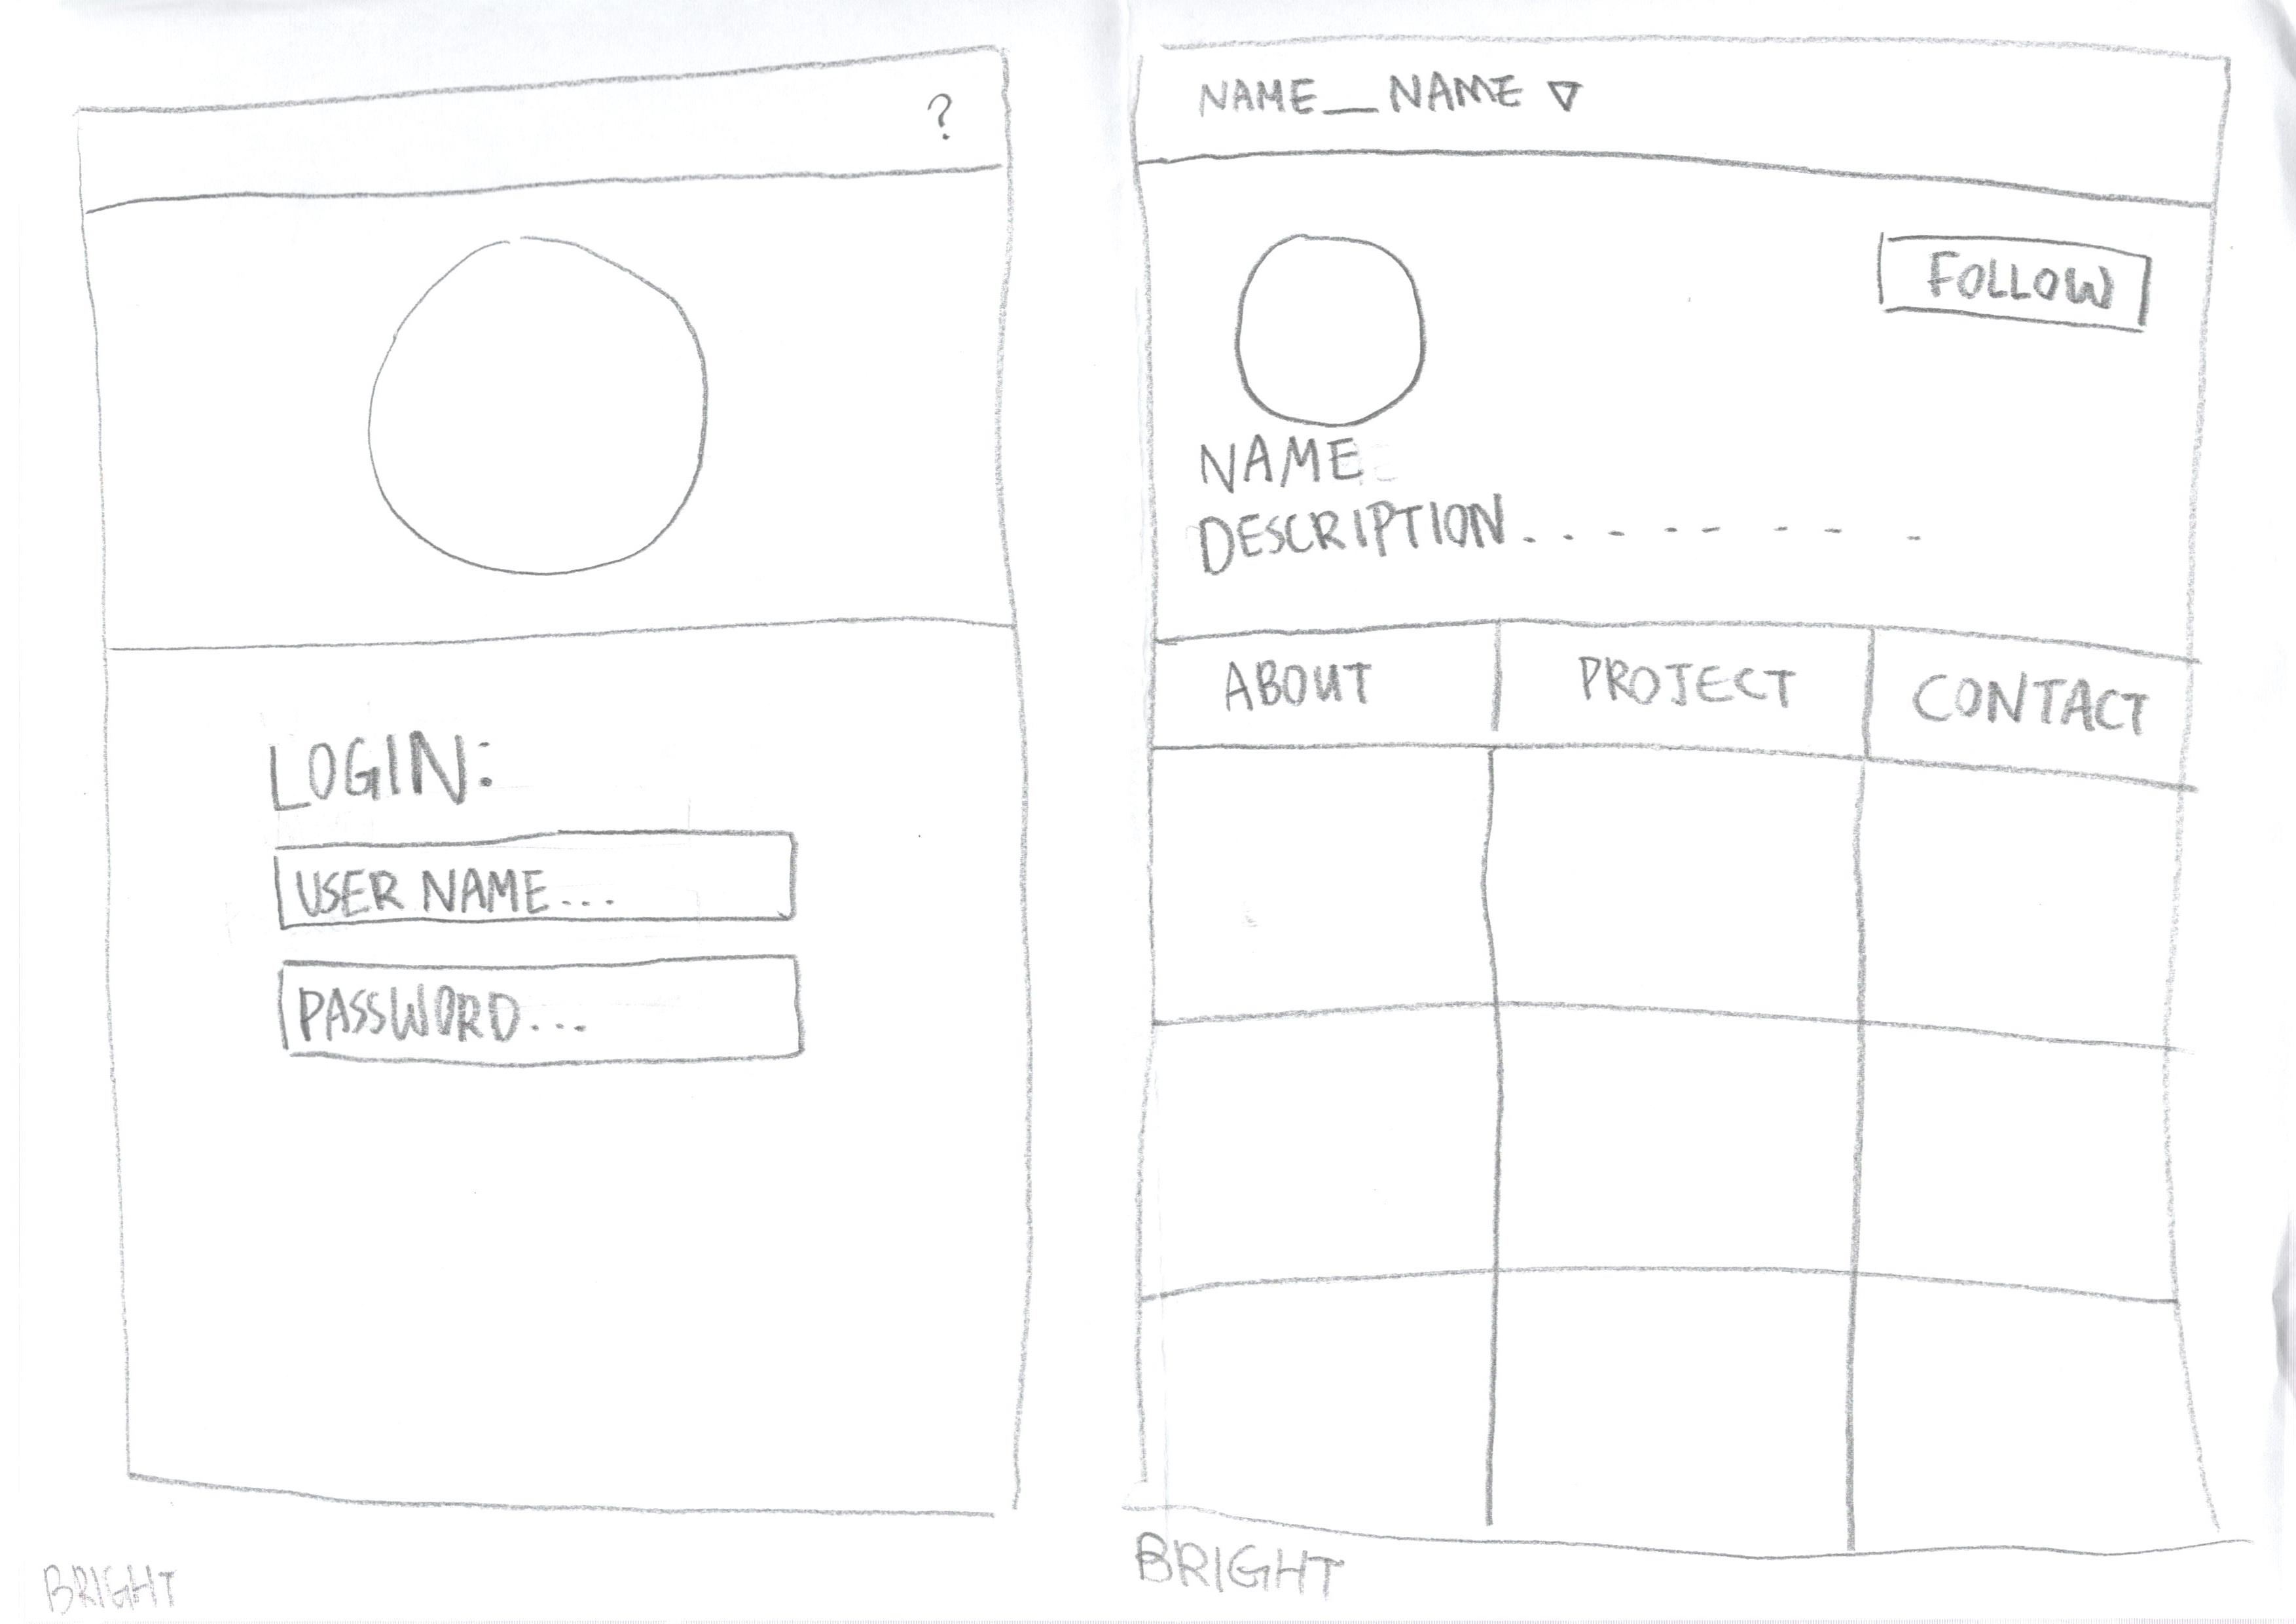 ?
LOGIN:
USER NAME...
PASSWORD...
BRIGHT
NAME__NAME ▽
FOLLOW
NAME
DESCRIPTION.......
ABOUT PROJECT CONTACT
BRIGHT